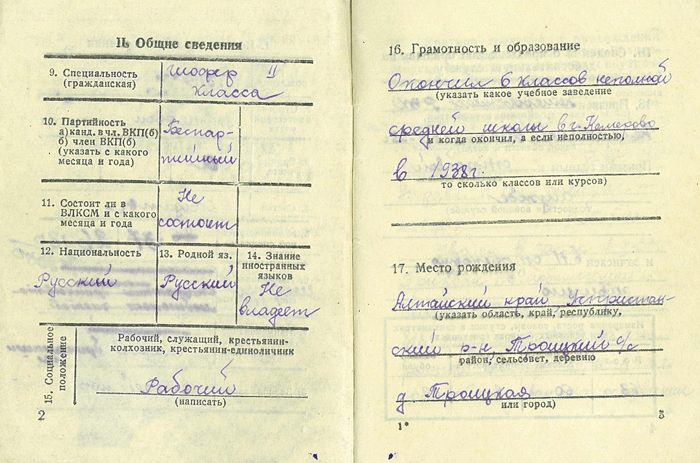 II. Общие сведения
9. Специальность
(гражданская)
шофер II
класса
10. Партийность
а) канд. в чл. ВКП(б)
б) член ВКП(б)
(указать с какого
месяца и года)
Беспар-
тийный
11. Состоит ли в
ВЛКСМ и с какого
месяца и года
Не
состоит
12. Национальность
Русский
13. Родной яз.
Русский
14. Знание
иностранных
языков
Не
владеет
15. Социальное
положение
Рабочий, служащий, крестьянин-
колхозник, крестьянин-единоличник
Рабочий
(написать)
2
16. Грамотность и образование
Окончил 6 классов неполной
(указать какое учебное заведение
средней школы в г. Кемерово
и когда окончил, а если неполностью,
в 1938г.
то сколько классов или курсов)
17. Место рождения
Алтайский край
(указать область, край, республику,
ский р-н, Троицкий с/с
район, сельсовет, деревню
д. Троицкая
или город)
1*
3